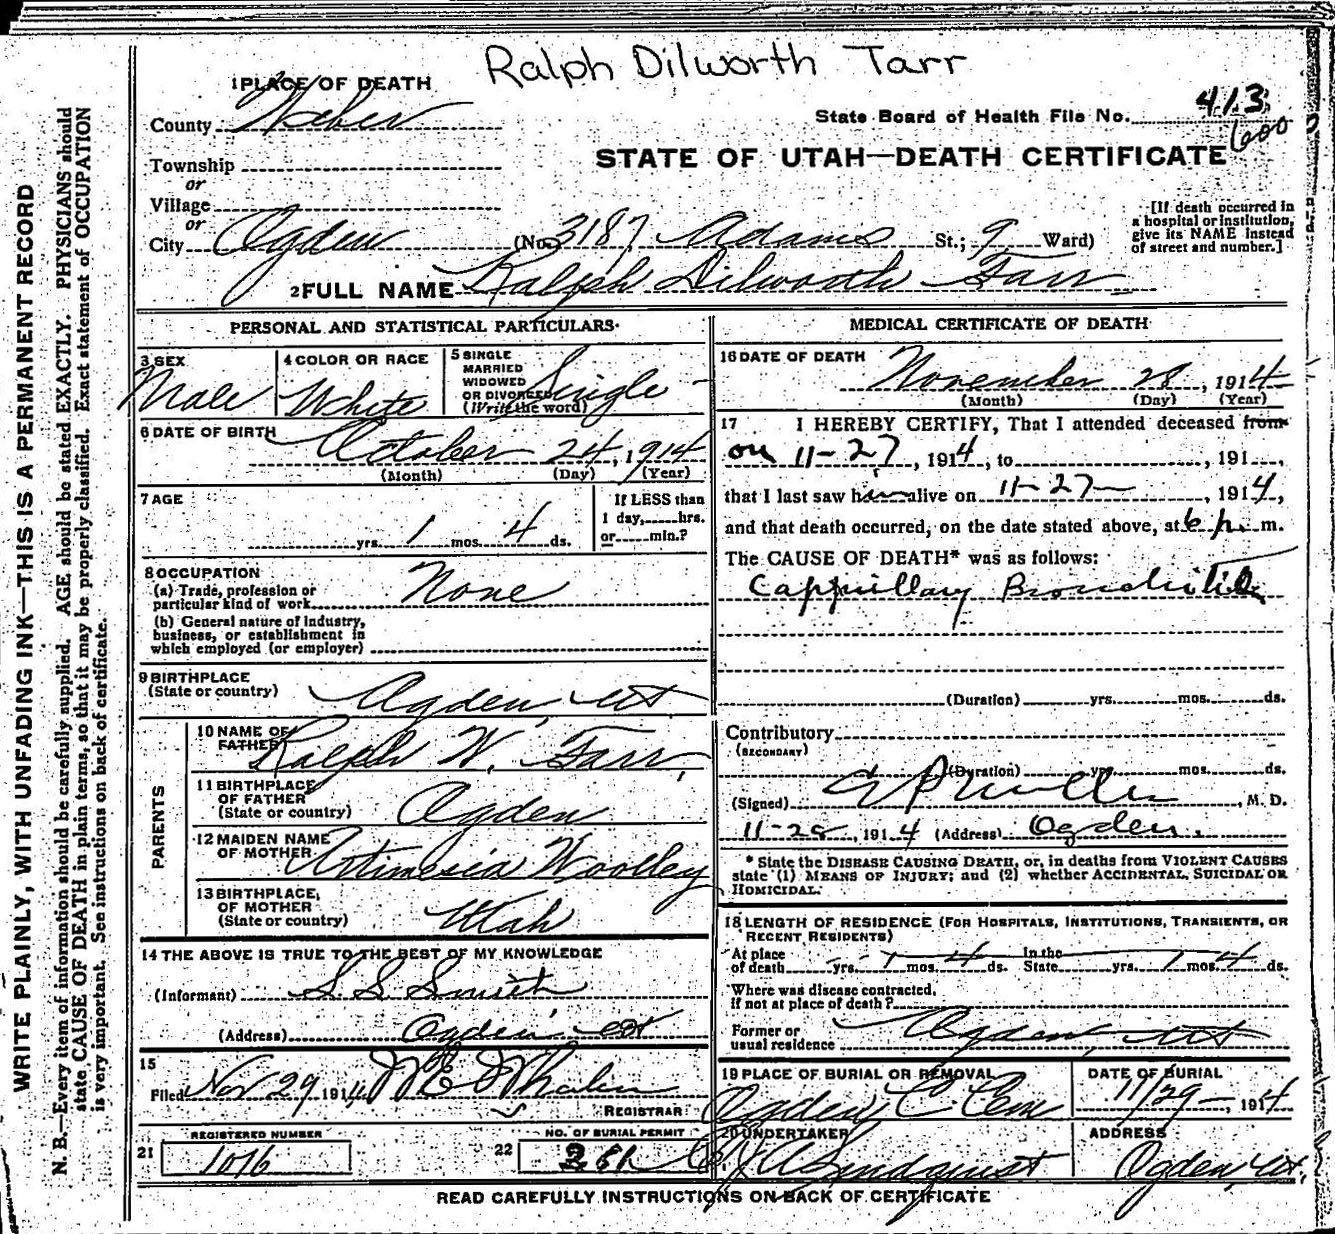 Ralph Dilworth Tarr
1 PLACE OF DEATH
County Weber
State Board of Health File No. 413
600
STATE OF UTAH—DEATH CERTIFICATE
Township
or
Village
or
City Ogden (No. 3187 Adams St.; 9 Ward)
[If death occurred in
a hospital or institution,
give its NAME instead
of street and number.]
2 FULL NAME Ralph Dilworth Farr
PERSONAL AND STATISTICAL PARTICULARS
3 SEX
Male
4 COLOR OR RACE
White
5 SINGLE
MARRIED
WIDOWED
OR DIVORCED
(Write the word)
Single
6 DATE OF BIRTH
October 24, 1914
(Month) (Day) (Year)
7 AGE
yrs. 1 mos. 4 ds.
If LESS than
1 day, hrs.
or min.?
8 OCCUPATION
(a) Trade, profession or
particular kind of work None
(b) General nature of industry,
business, or establishment in
which employed (or employer)
9 BIRTHPLACE
(State or country) Ogden, Ut
PARENTS
10 NAME OF
FATHER Ralph W. Farr,
11 BIRTHPLACE
OF FATHER
(State or country) Ogden
12 MAIDEN NAME
OF MOTHER Artimesia Woolley
13 BIRTHPLACE,
OF MOTHER
(State or country) Utah
14 THE ABOVE IS TRUE TO THE BEST OF MY KNOWLEDGE
(Informant) S. S. Smith
(Address) Ogden Ut
15
Filed Nov 29 1914 Whalen
REGISTRAR
REGISTERED NUMBER
21 1076
NO. OF BURIAL PERMIT
22 281
MEDICAL CERTIFICATE OF DEATH
16 DATE OF DEATH
November 28, 1914
(Month) (Day) (Year)
17 I HEREBY CERTIFY, That I attended deceased from
on 11-27, 1914, to , 191 ,
that I last saw him alive on 11-27, 1914,
and that death occurred, on the date stated above, at 6 p. m.
The CAUSE OF DEATH* was as follows:
Cappillary Bronchitis
(Duration) yrs. mos. ds.
Contributory
(SECONDARY)
(Duration) yrs. mos. ds.
(Signed) , M. D.
11-28, 1914 (Address) Ogden.
* State the DISEASE CAUSING DEATH, or, in deaths from VIOLENT CAUSES
state (1) MEANS OF INJURY; and (2) whether ACCIDENTAL, SUICIDAL OR
HOMICIDAL.
18 LENGTH OF RESIDENCE (FOR HOSPITALS, INSTITUTIONS, TRANSIENTS, OR
RECENT RESIDENTS)
At place
of death yrs. 1 mos. 4 ds. In the
State yrs. 1 mos. 4 ds.
Where was disease contracted,
if not at place of death?
Former or
usual residence Ogden, Ut
19 PLACE OF BURIAL OR REMOVAL
Ogden C. Cem
DATE OF BURIAL
11/29, 1914
20 UNDERTAKER
Lindquist
ADDRESS
Ogden, Ut.
READ CAREFULLY INSTRUCTIONS ON BACK OF CERTIFICATE
WRITE PLAINLY, WITH UNFADING INK—THIS IS A PERMANENT RECORD
N. B.—Every item of information should be carefully supplied. AGE should be stated EXACTLY. PHYSICIANS should
state CAUSE OF DEATH in plain terms, so that it may be properly classified. Exact statement of OCCUPATION
is very important. See instructions on back of certificate.